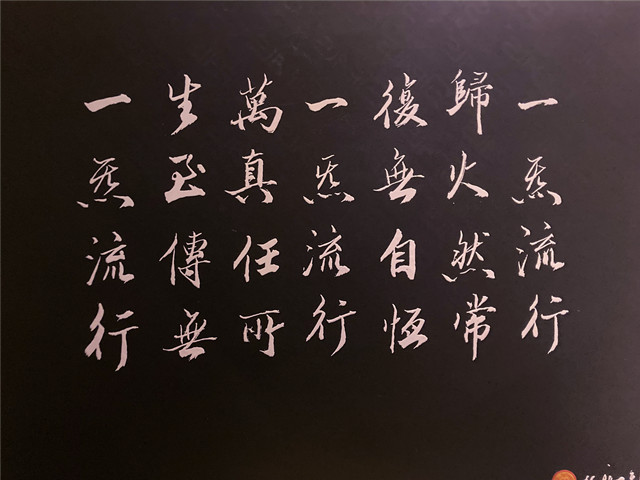 一炁流行
歸火然常
復無自恒
一炁流行
萬真任所
生至傳無
一炁流行